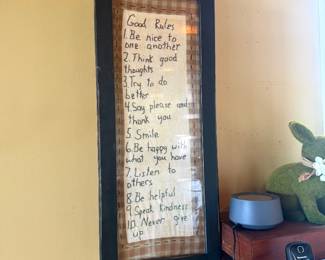 Good Rules
1. Be nice to
one another
2. Think good
thoughts
3. Try to do
better
4. Say please and
thank you
5. Smile
6. Be happy with
what you have
7. Listen to
others
8. Be helpful
9. Speak Kindness
10. Never give
up